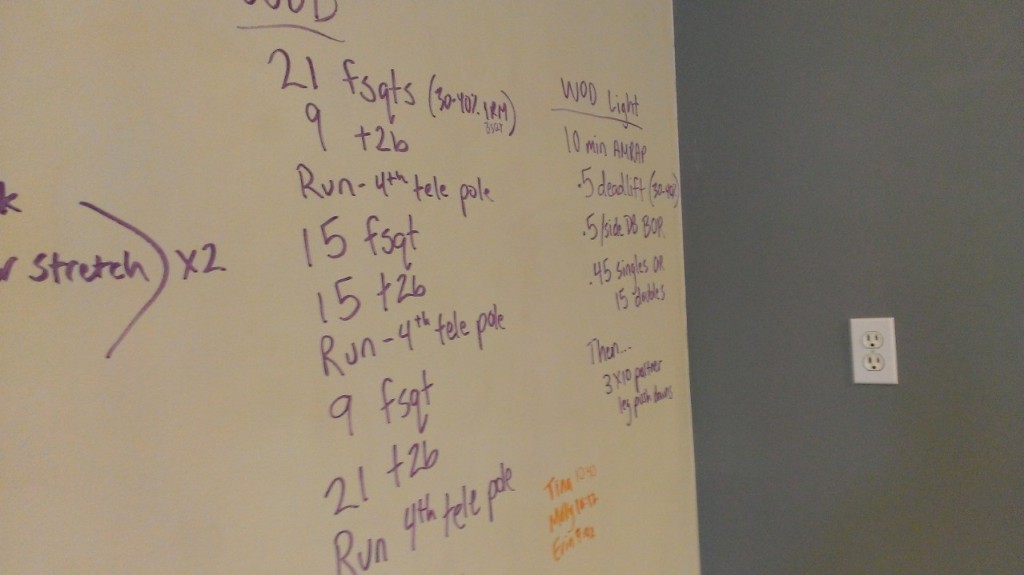 WOD
21 fsqts (30-40% 1RM)
9 t2b
Run - 4th tele pole
15 fsqt
15 t2b
Run - 4th tele pole
9 fsqt
21 t2b
Run 4th tele pole
stretch) x2
WOD Light
10 min AMRAP
.5 deadlift (30-40)
.5/side DB BOP
.45 singles OR
15 doubles
Then...
3x10 partner
leg push downs
Tina
Molly
Erin